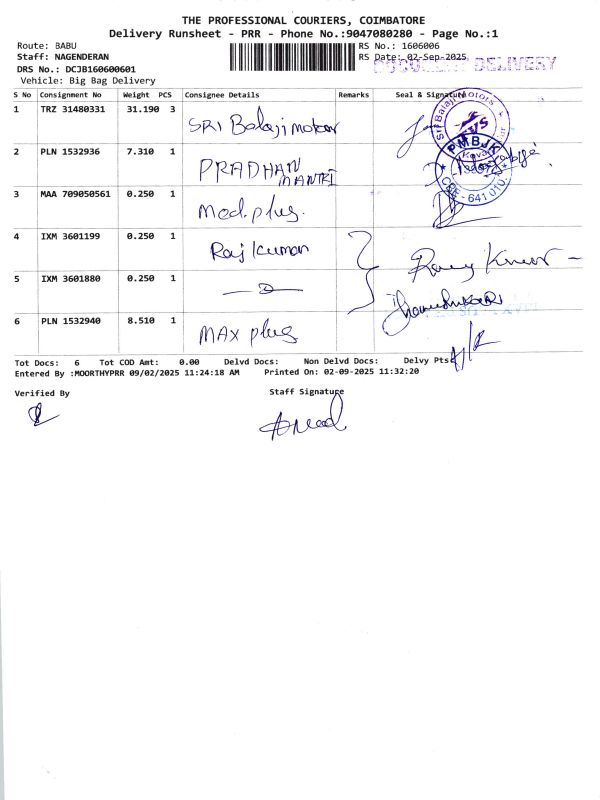 THE PROFESSIONAL COURIERS, COIMBATORE
Delivery Runsheet - PRR - Phone No.:9047080280 - Page No.:1
Route: BABU RS No.: 1606006
Staff: NAGENDERAN RS Date: 02-Sep-2025
DOCUMENT DELIVERY
DRS No.: DCJB160600601
Vehicle: Big Bag Delivery
S No Consignment No Weight PCS Consignee Details Remarks Seal & Signature
1 TRZ 31480331 31.190 3 SRI Balaji motor
Sri Balaji Motors
2 PLN 1532936 7.310 1 PRADHAN MANTRI
PMBJK
CBE - 641 010.
3 MAA 709050561 0.250 1 Med plus
4 IXM 3601199 0.250 1 Raj Kumar
5 IXM 3601880 0.250 1
6 PLN 1532940 8.510 1 MAX plus
Tot Docs: 6 Tot COD Amt: 0.00 Delvd Docs: Non Delvd Docs: Delvy Pts:
Entered By :MOORTHYPRR 09/02/2025 11:24:18 AM Printed On: 02-09-2025 11:32:20
Verified By Staff Signature